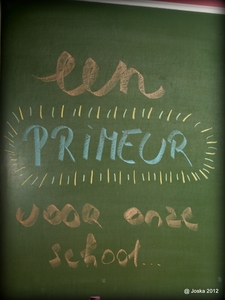 een
PRIMEUR
voor onze
school...
@ Joska 2012